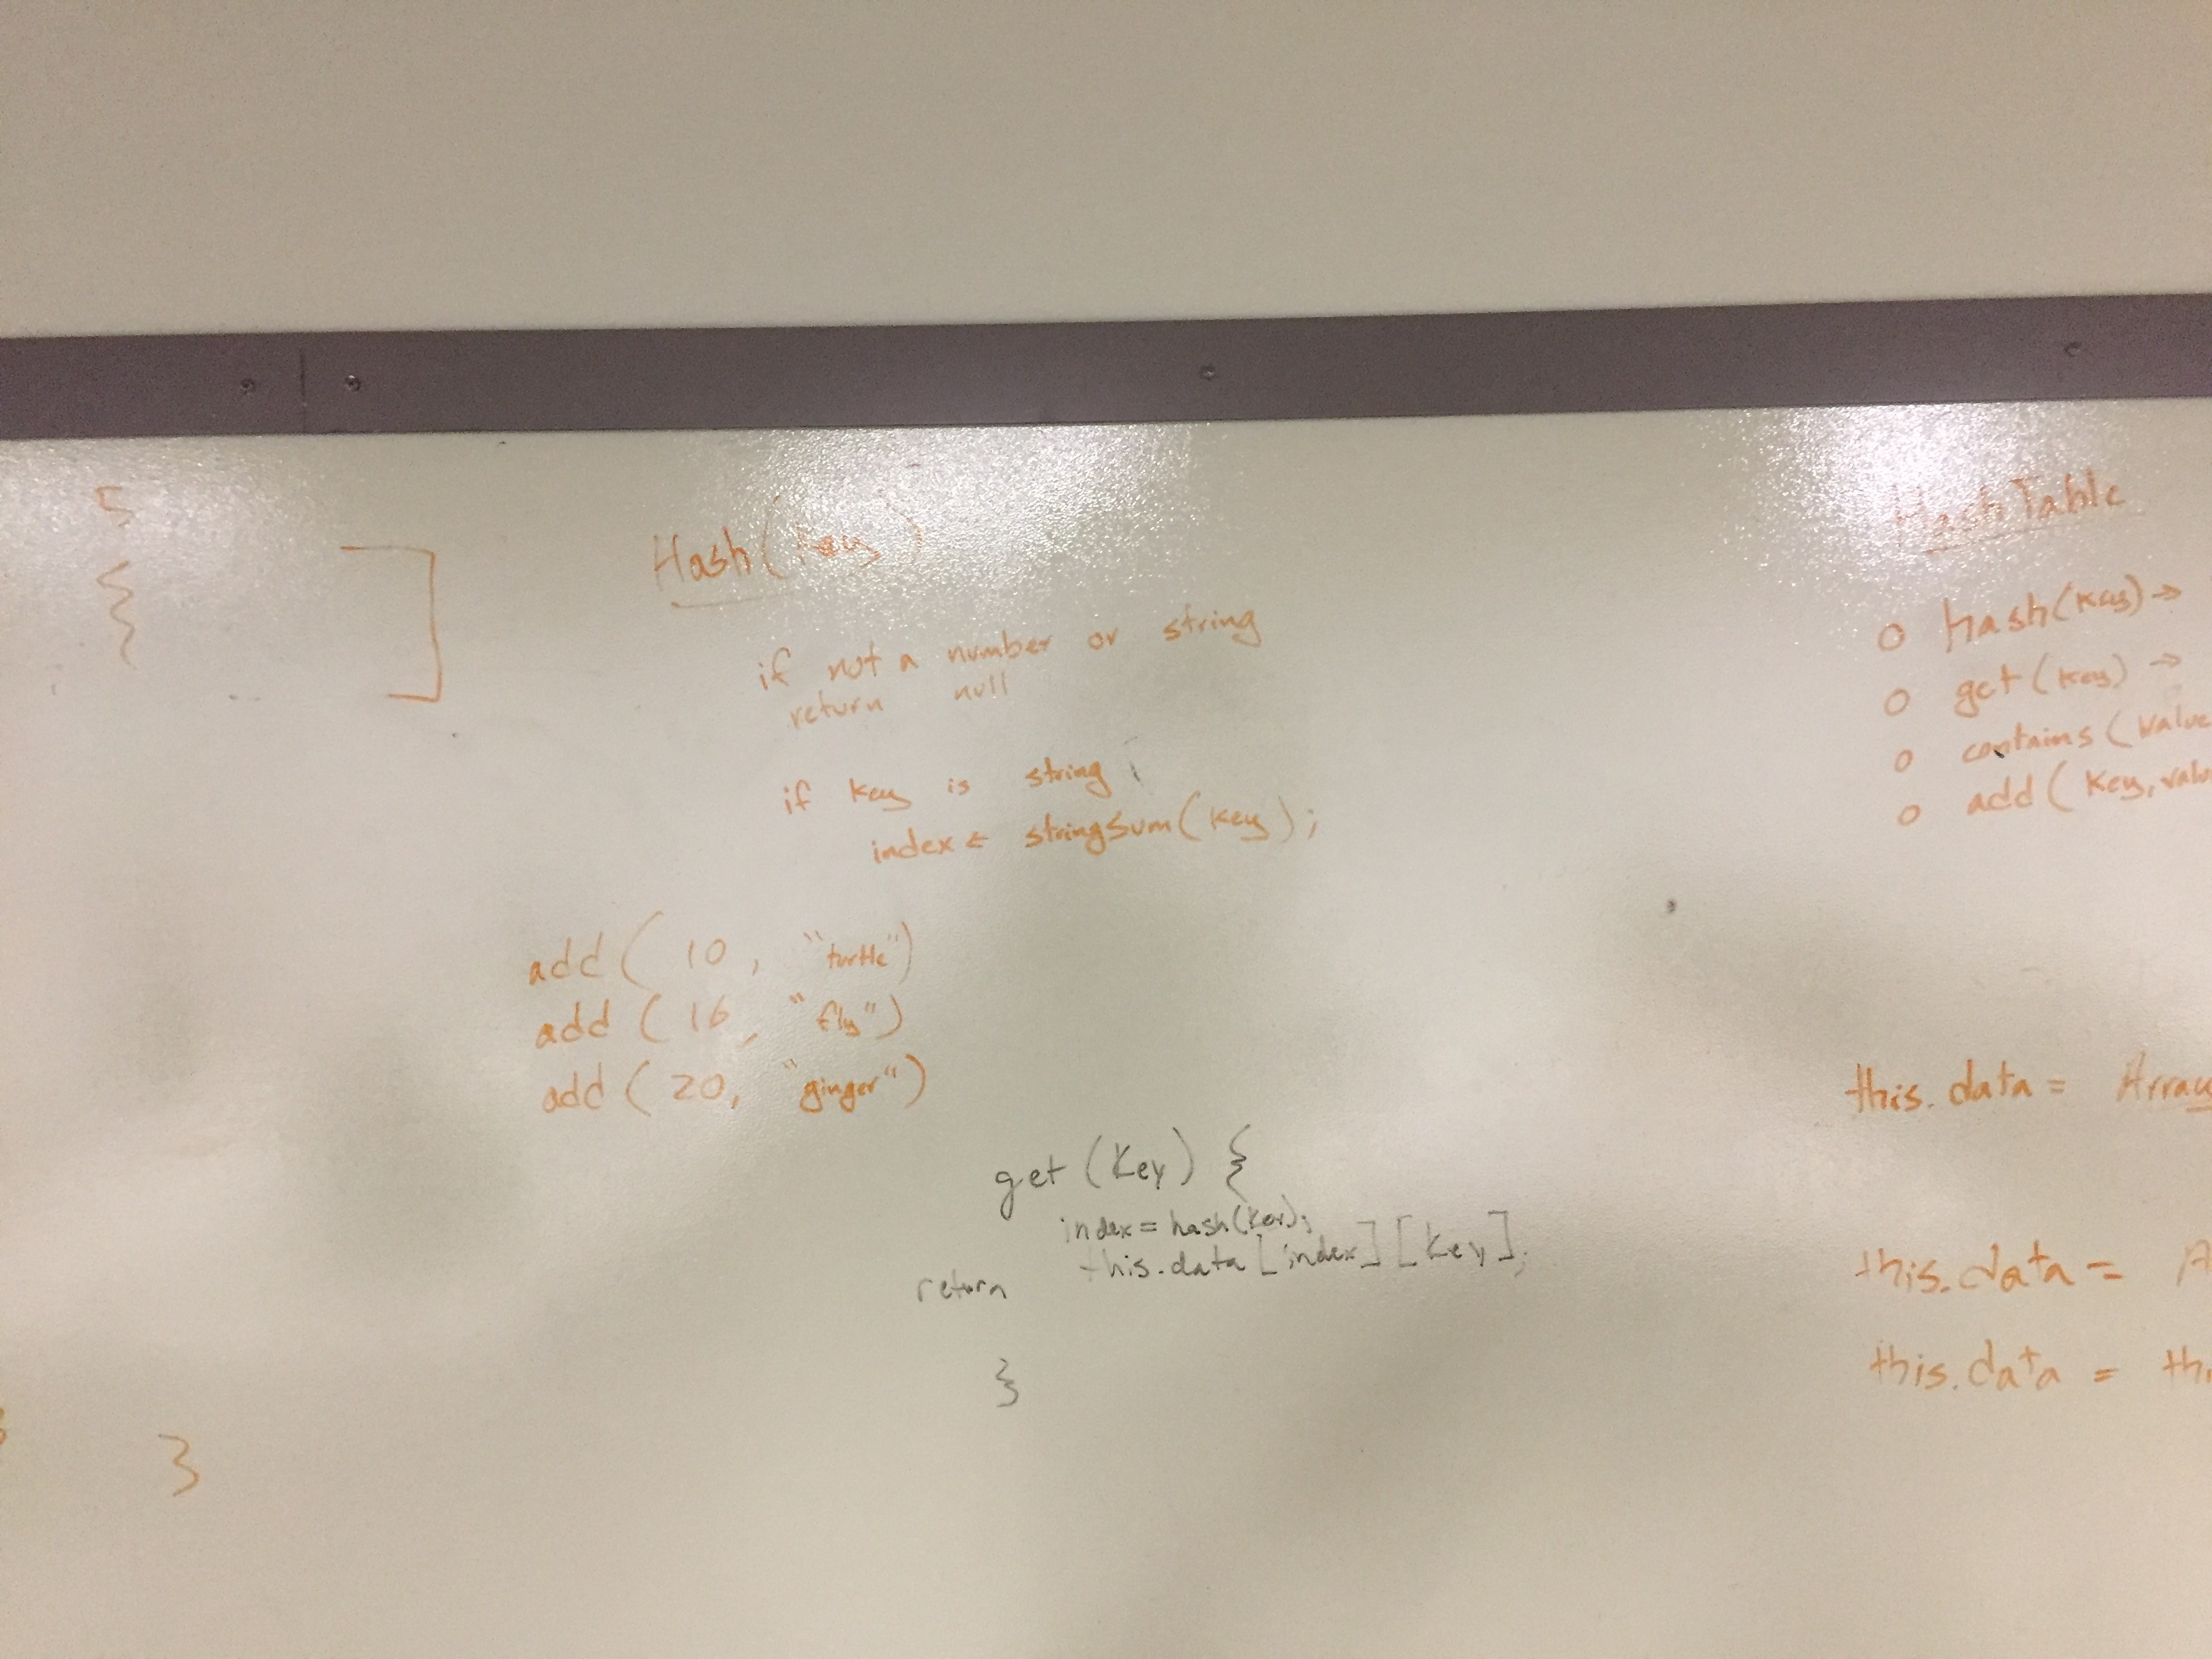 5
{
]
Hash(key)
if not a number or string
return null
if key is string
index ← stringSum(key);
add( 10, "turtle")
add( 16, "fly")
add( 20, "ginger")
get (Key) {
index = hash(key);
return this.data[index][key];
}
}
HashTable
o hash(key) →
o get(key) →
o contains(value
o add(key, valu
this.data = Array
this.data = A
this.data = thi